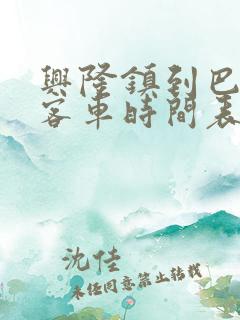 興隆鎮到巴
客車時間表
沈佳
未經同意禁止轉載